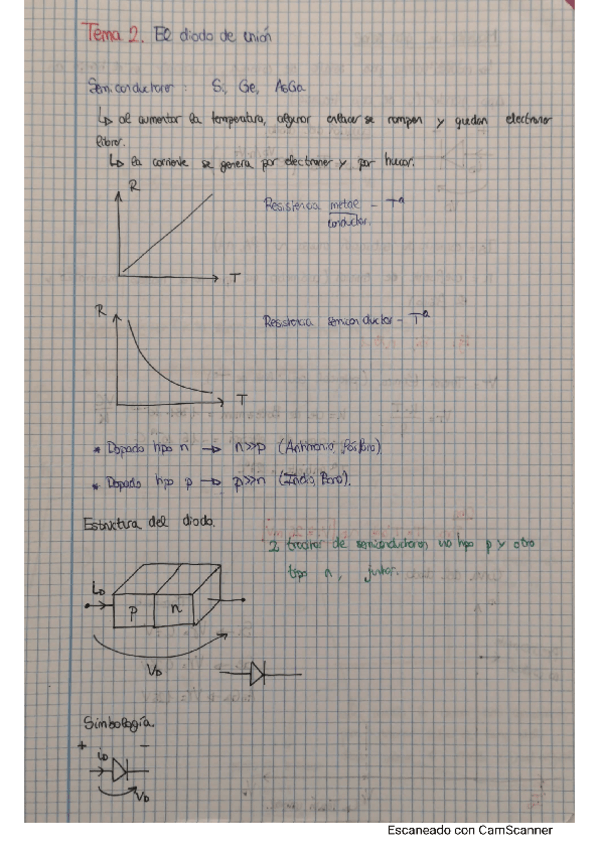 Tema 2. El diodo de unión
Semiconductores: Si, Ge, AsGa
↳ al aumentar la temperatura, algunos enlaces se rompen y quedan electrones
libres.
↳ la corriente se genera por electrones y por huecos.
R
Resistencia metal - Tª
conductor.
T
R
Resistencia semiconductor - Tª
T
* Dopado tipo n → n>>p (Antimonio, fósforo)
* Dopado tipo p → p>>n (Indio, Boro).
Estructura del diodo.
2 trozos de semiconductores, uno tipo p y otro
tipo n, juntos.
iD
p n
VD
Simbología.
+ -
iD
VD
Escaneado con CamScanner